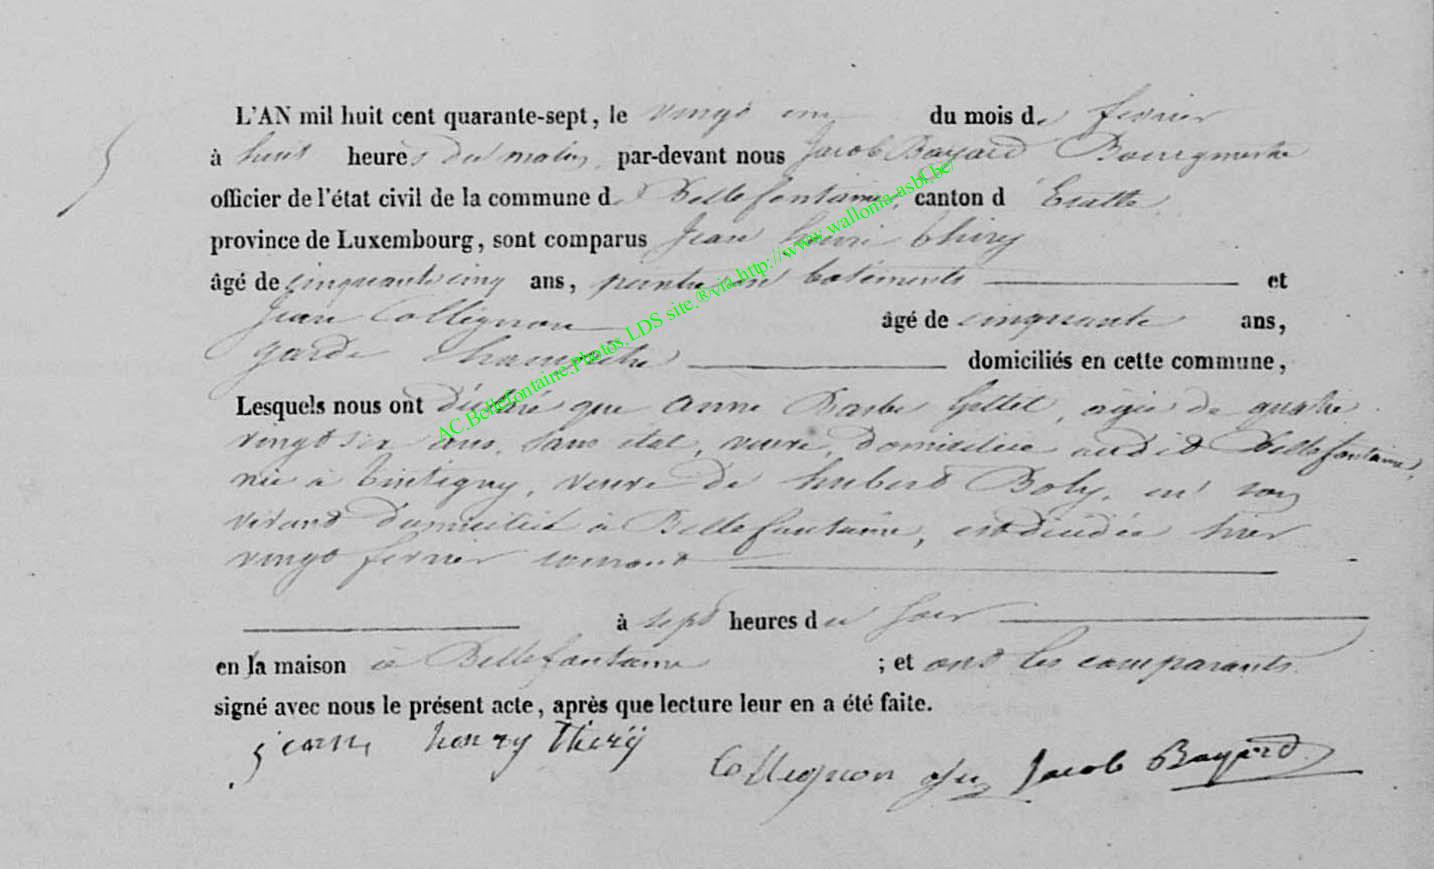 5
L'AN mil huit cent quarante-sept, le vingt un du mois de fevrier
à huit heures du matin, par-devant nous Jacob Bayard Bourgmestre
officier de l'état civil de la commune de Bellefontaine, canton d'Etalle
province de Luxembourg, sont comparus Jean henri thiry
âgé de cinquante cinq ans, peintre en batiments et
Jean Collignon âgé de cinquante ans,
garde champêtre domiciliés en cette commune,
Lesquels nous ont déclaré que anne Barbe Gillet, agée de quatre
vingt six ans, sans état, veuve, domiciliée audit Bellefontaine,
née à tintigny, veuve de hubert Boly, en son
vivant domicilié à Bellefontaine, est décédée hier
vingt fevrier courant
à sept heures du soir
en la maison à Bellefontaine ; et ont les comparants
signé avec nous le présent acte, après que lecture leur en a été faite.
jean henry thiry
Collignon Jn Jacob Bayard
AC.Bellefontaine.Photos.LDS site.®via http://www.wallonia-asbl.be/